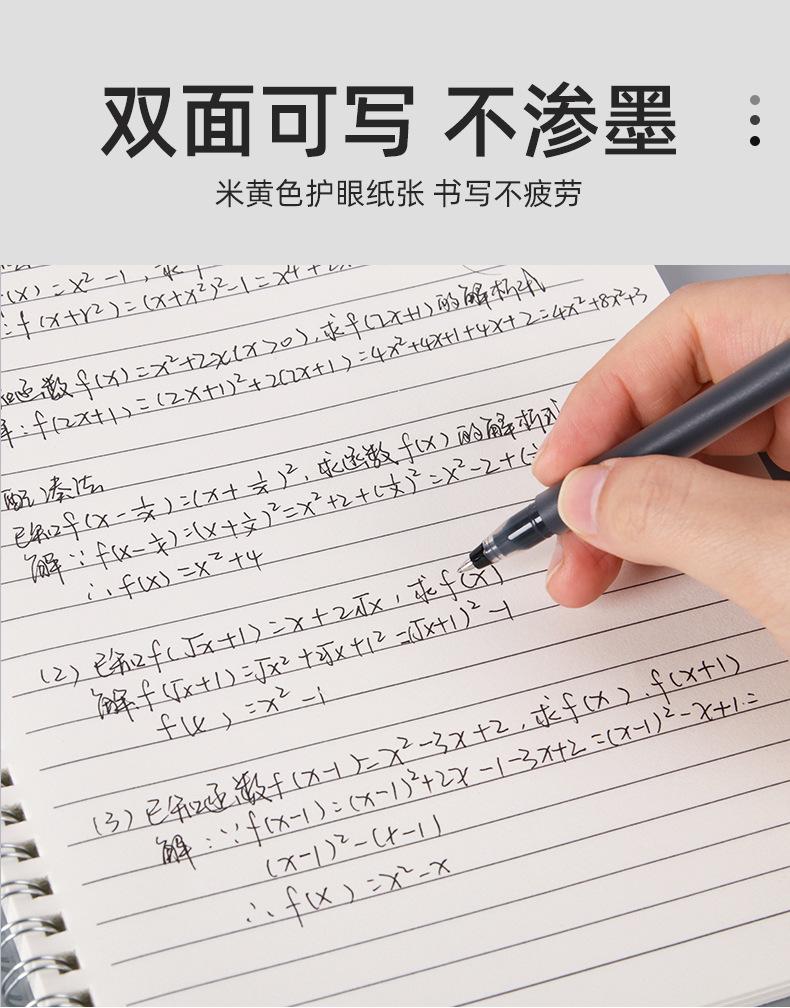 双面可写 不渗墨
米黄色护眼纸张 书写不疲劳
(x)=x²-1,求f
∴f(x+x²)=(x+x²)²-1=x⁴+2x
函数f(x)=x²+2x(x>0),求f(2x+1)的解析式
解:f(2x+1)=(2x+1)²+2(2x+1)=4x²+4x+1+4x+2=4x²+8x+3
配凑法
已知f(x-1/x)=(x+1/x)²,求函数f(x)的解析式
解∵f(x-1/x)=(x+1/x)²=x²+2+(1/x)²=x²-2+(
∴f(x)=x²+4
(2)已知f(√x+1)=x+2√x,求f(x)
解f(√x+1)=√x²+2√x+1²=(√x+1)²-1
f(x)=x²-1
(3)已知函数f(x-1)=x²-3x+2,求f(x).f(x+1)
解:∵f(x-1)=(x-1)²+2x-1-3x+2=(x-1)²-x+1=
(x-1)²-(x-1)
∴f(x)=x²-x